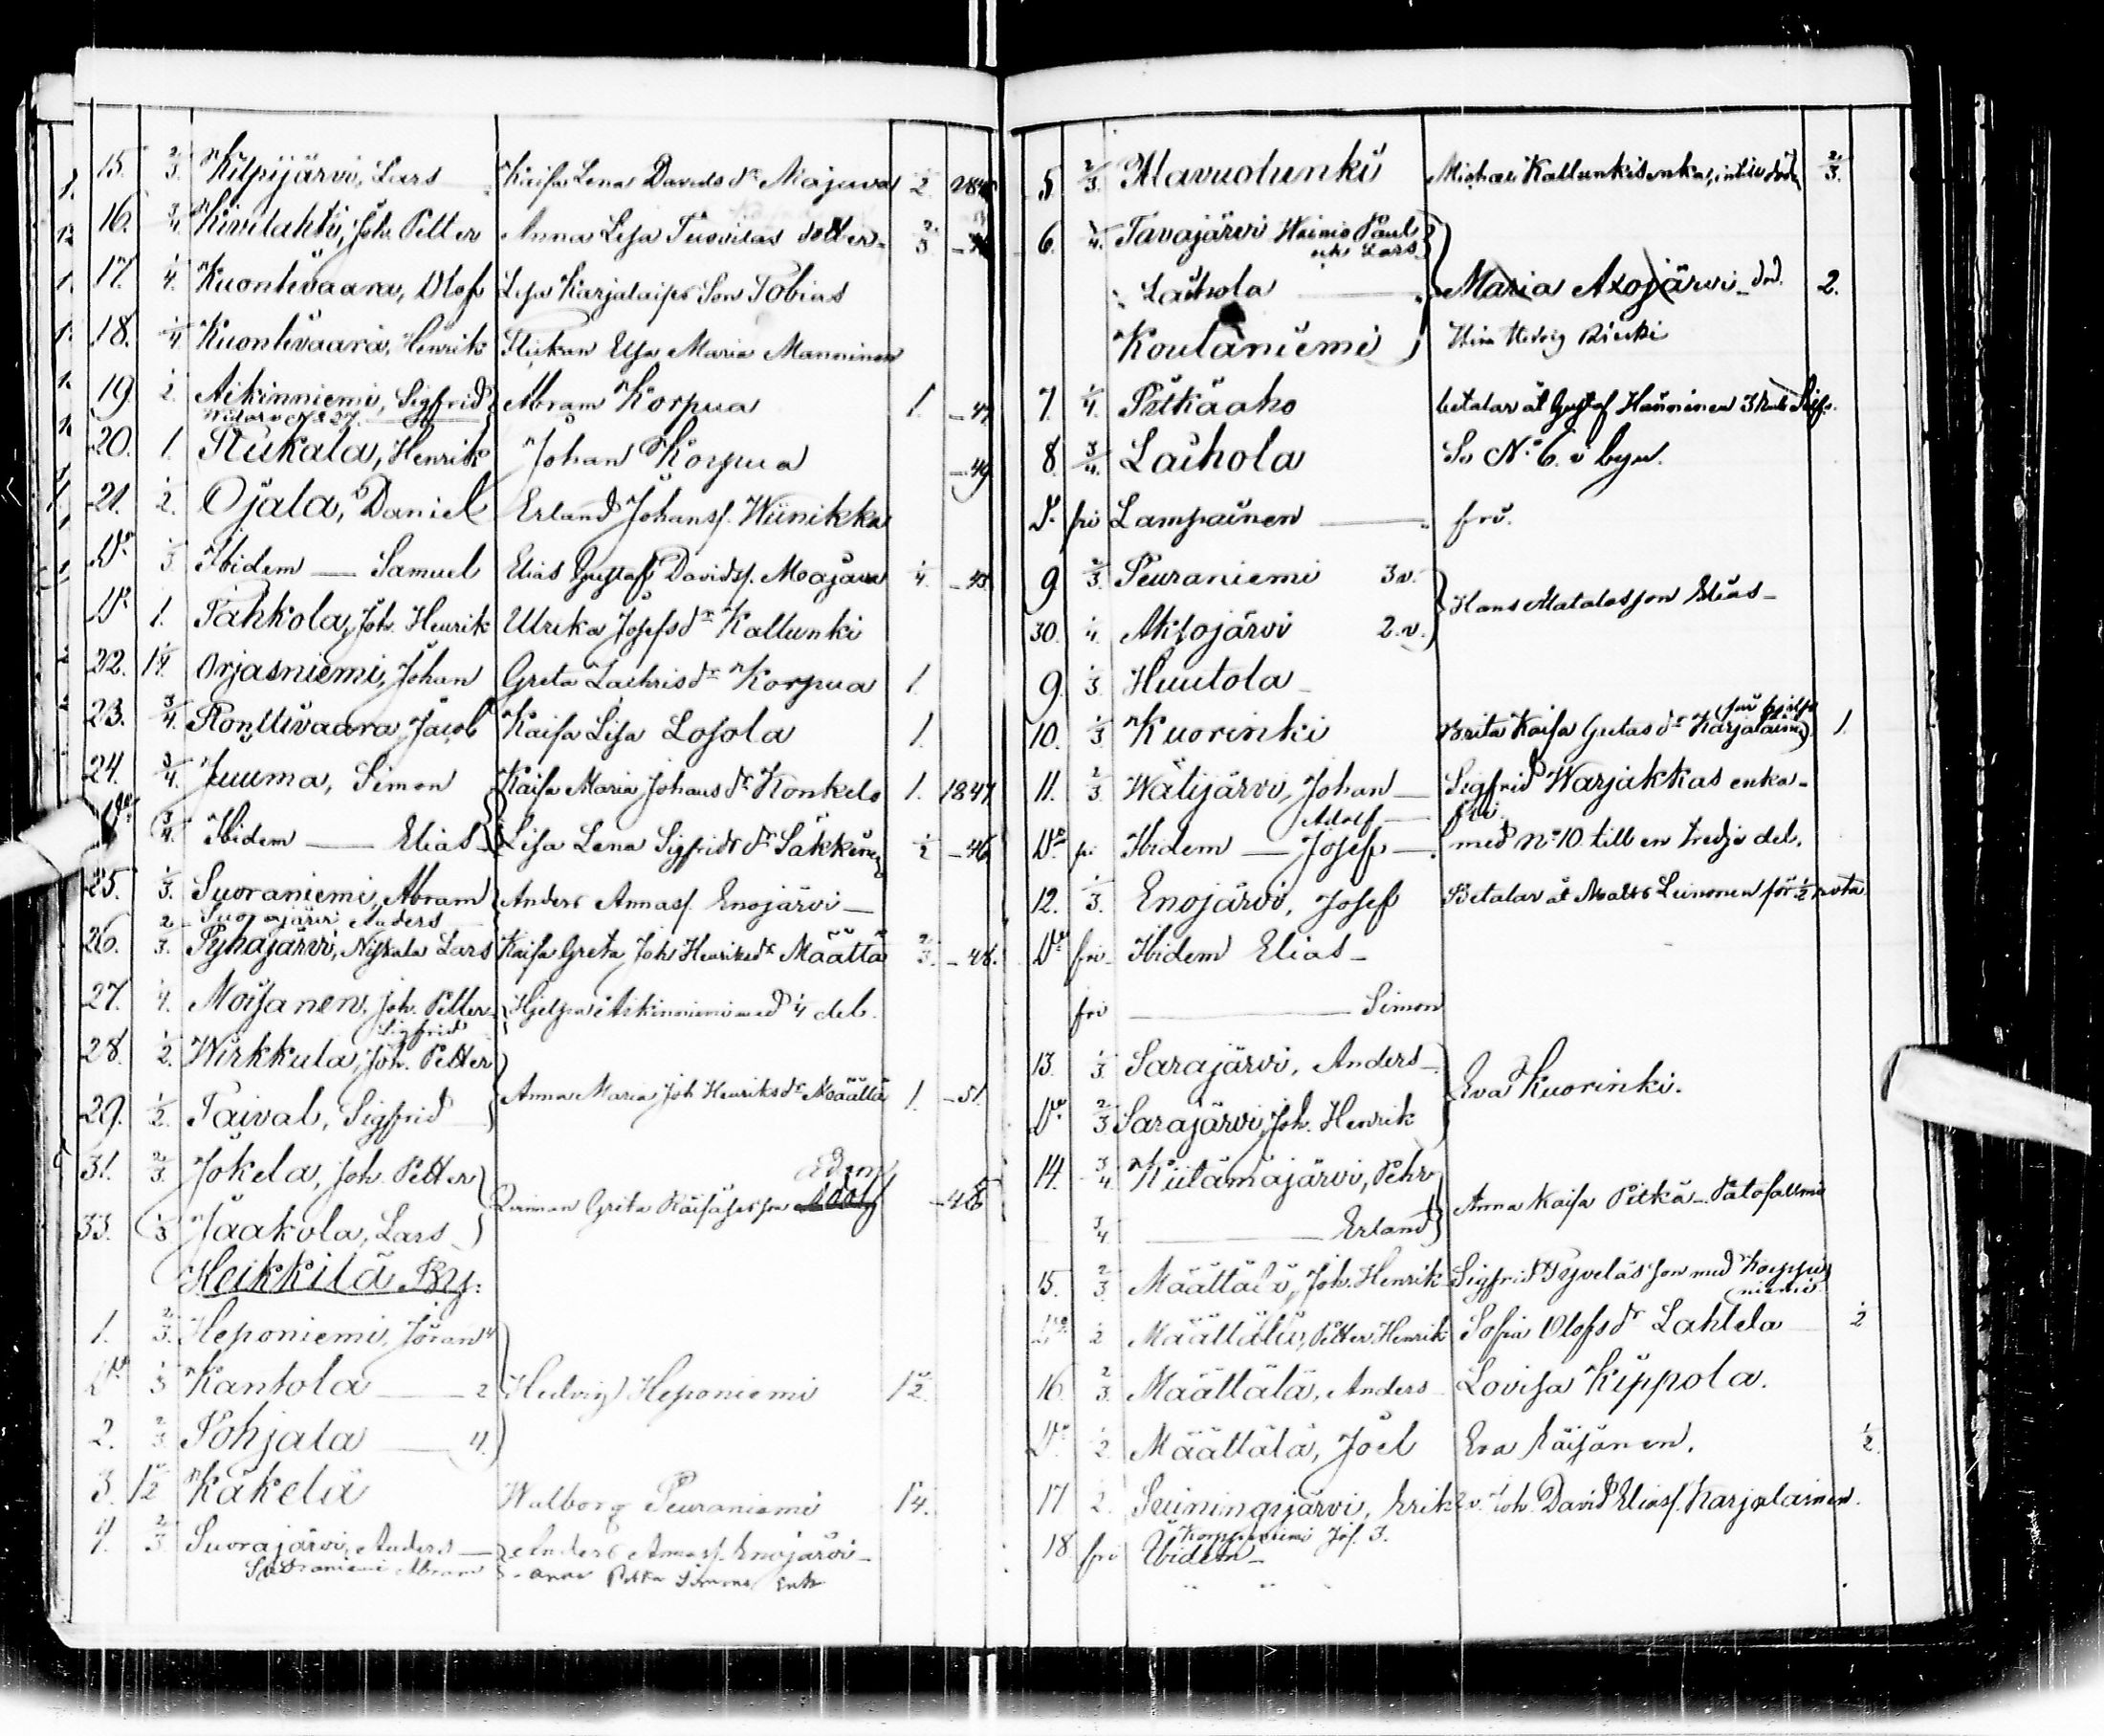 15. 2/3. Kilpijärvi, Lars Kaisa Lena Davids dr Majava 1/2
16. 3/4. Kivilahti, Joh. Petter Anna Lisa Tuovilas dotter 2/3
17. 1/4. Kuontivaara, Olof Lisa Karjalaises Son Tobias
18. 1/4. Kuontivaara, Henrik Elsa Maria Manninen
19. 1/2. Aikinniemi, Sigfrid Abram Korpua 1. -47
Widare N° 27.
20. 1. Riikala, Henrik Johan Korpua -49
21. 1/2. Ojala, Daniel Erland Johans. Wiinikka
Do 1/3 Ibidem — Samuel Elias Gustaf Davids. Majava 1/4. -43
Do 1. Tahkola, Joh. Henrik Ulrika Josefs dr Kallunki
22. 1 1/4. Orjasniemi, Johan Greta Zachris dr Korpua 1.
23. 3/4. Ronttivaara, Jacob Kaisa Lisa Losola 1.
24. 3/4. Juuma, Simon Kaisa Maria Johans dr Konkelo 1. 1847
Do 3/4. Ibidem — Elias Lisa Lena Sigfrids dr Säkkinen 1/2 -46
25. 1/3. Suoraniemi, Abram Anders Annas. Enojärvi —
Suorajärvi Anders
26. 2/3. Pyhäjärvi, Niskala Lars Kaisa Greta Joh Henriks dr Määttä 2/3. -48.
27. 1/4. Moisanen, Joh. Petter Hjelper Aikinniemi med 1/4 del.
Sigfrid
28. 1/2. Wirkkula, Joh. Petter
Anna Maria Joh Henriks dr Määttä 1. -51.
29. 1/2. Taival, Sigfrid
31. 2/3. Jokela, Joh. Petter
Greta Käisäses son Adolf
33. 1/3 Jaakola, Lars
Heikkilä By.
1. 2/3. Heponiemi, Jöran 4
Do 1/3 Kantola — 2 Hedvig Heponiemi 1 1/2.
2. 2/3 Pohjala — 4.
3. 1 1/2 Käkelä Walborg Peuraniemi 1 1/4.
4. 2/3 Suorajärvi, Anders — Anders Annas. Enojärvi —
Suoraniemi Abram
5 2/3. Mavuolunki Michael Kallunkis enka, 2/3.
6. 3/4. Tavajärvi Wäinio Paul
och Lars
Laihola — Maria Axojärvi 2.
Koulaniemi
7. 1/4. Pitkäaho betalar åt Gustaf Hänninen 3 Rub Silf.
8. 3/4. Laihola Se N° 6. i byn.
Do fri Lampainen — fri.
9 2/3. Peuraniemi 3 v.
Hans Matalas son Elias —
30. 1/4. Aksojärvi 2. v.
9. 1/3 Huutola —
10. 1/3 Kuorinki Brita Kaisa Gretas dr Karjalainen 1.
11. 2/3. Wälijärvi, Johan — Sigfrid Warjakkas enka —
Adolf — fri.
Do fri Ibidem — Josef — med N° 10 till en tredje del.
12. 1/3. Enojärvi, Josef Betalar åt Matts Leinonen för 1/2 rota
Do fri — Ibidem Elias —
fri — Simon
13. 1/3. Sarajärvi, Anders —
Eva Kuorinki.
Do 2/3 Sarajärvi, Joh. Henrik
14. 3/4 Kiitämäjärvi, Pehr
Anna Kaisa Pitkä — Patosalmi
3/4 — Erland
15. 2/3. Määttälä, Joh. Henrik Sigfrid Tyveläs son med Korppi
niemi.
Do 1/2 Määttälä, Petter Henrik Sofia Olofs dr Lahtela 1/2
16 2/3. Määttälä, Anders Lovisa Kippola.
Do 1/2 Määttälä, Joel Eva Käisänen. 1/2.
17 1/2. Suiningijärvi, Erik 2 v. Joh. David Elias. Karjalainen.
Korppiniemi Jos. 3.
18 fri Ibidem —